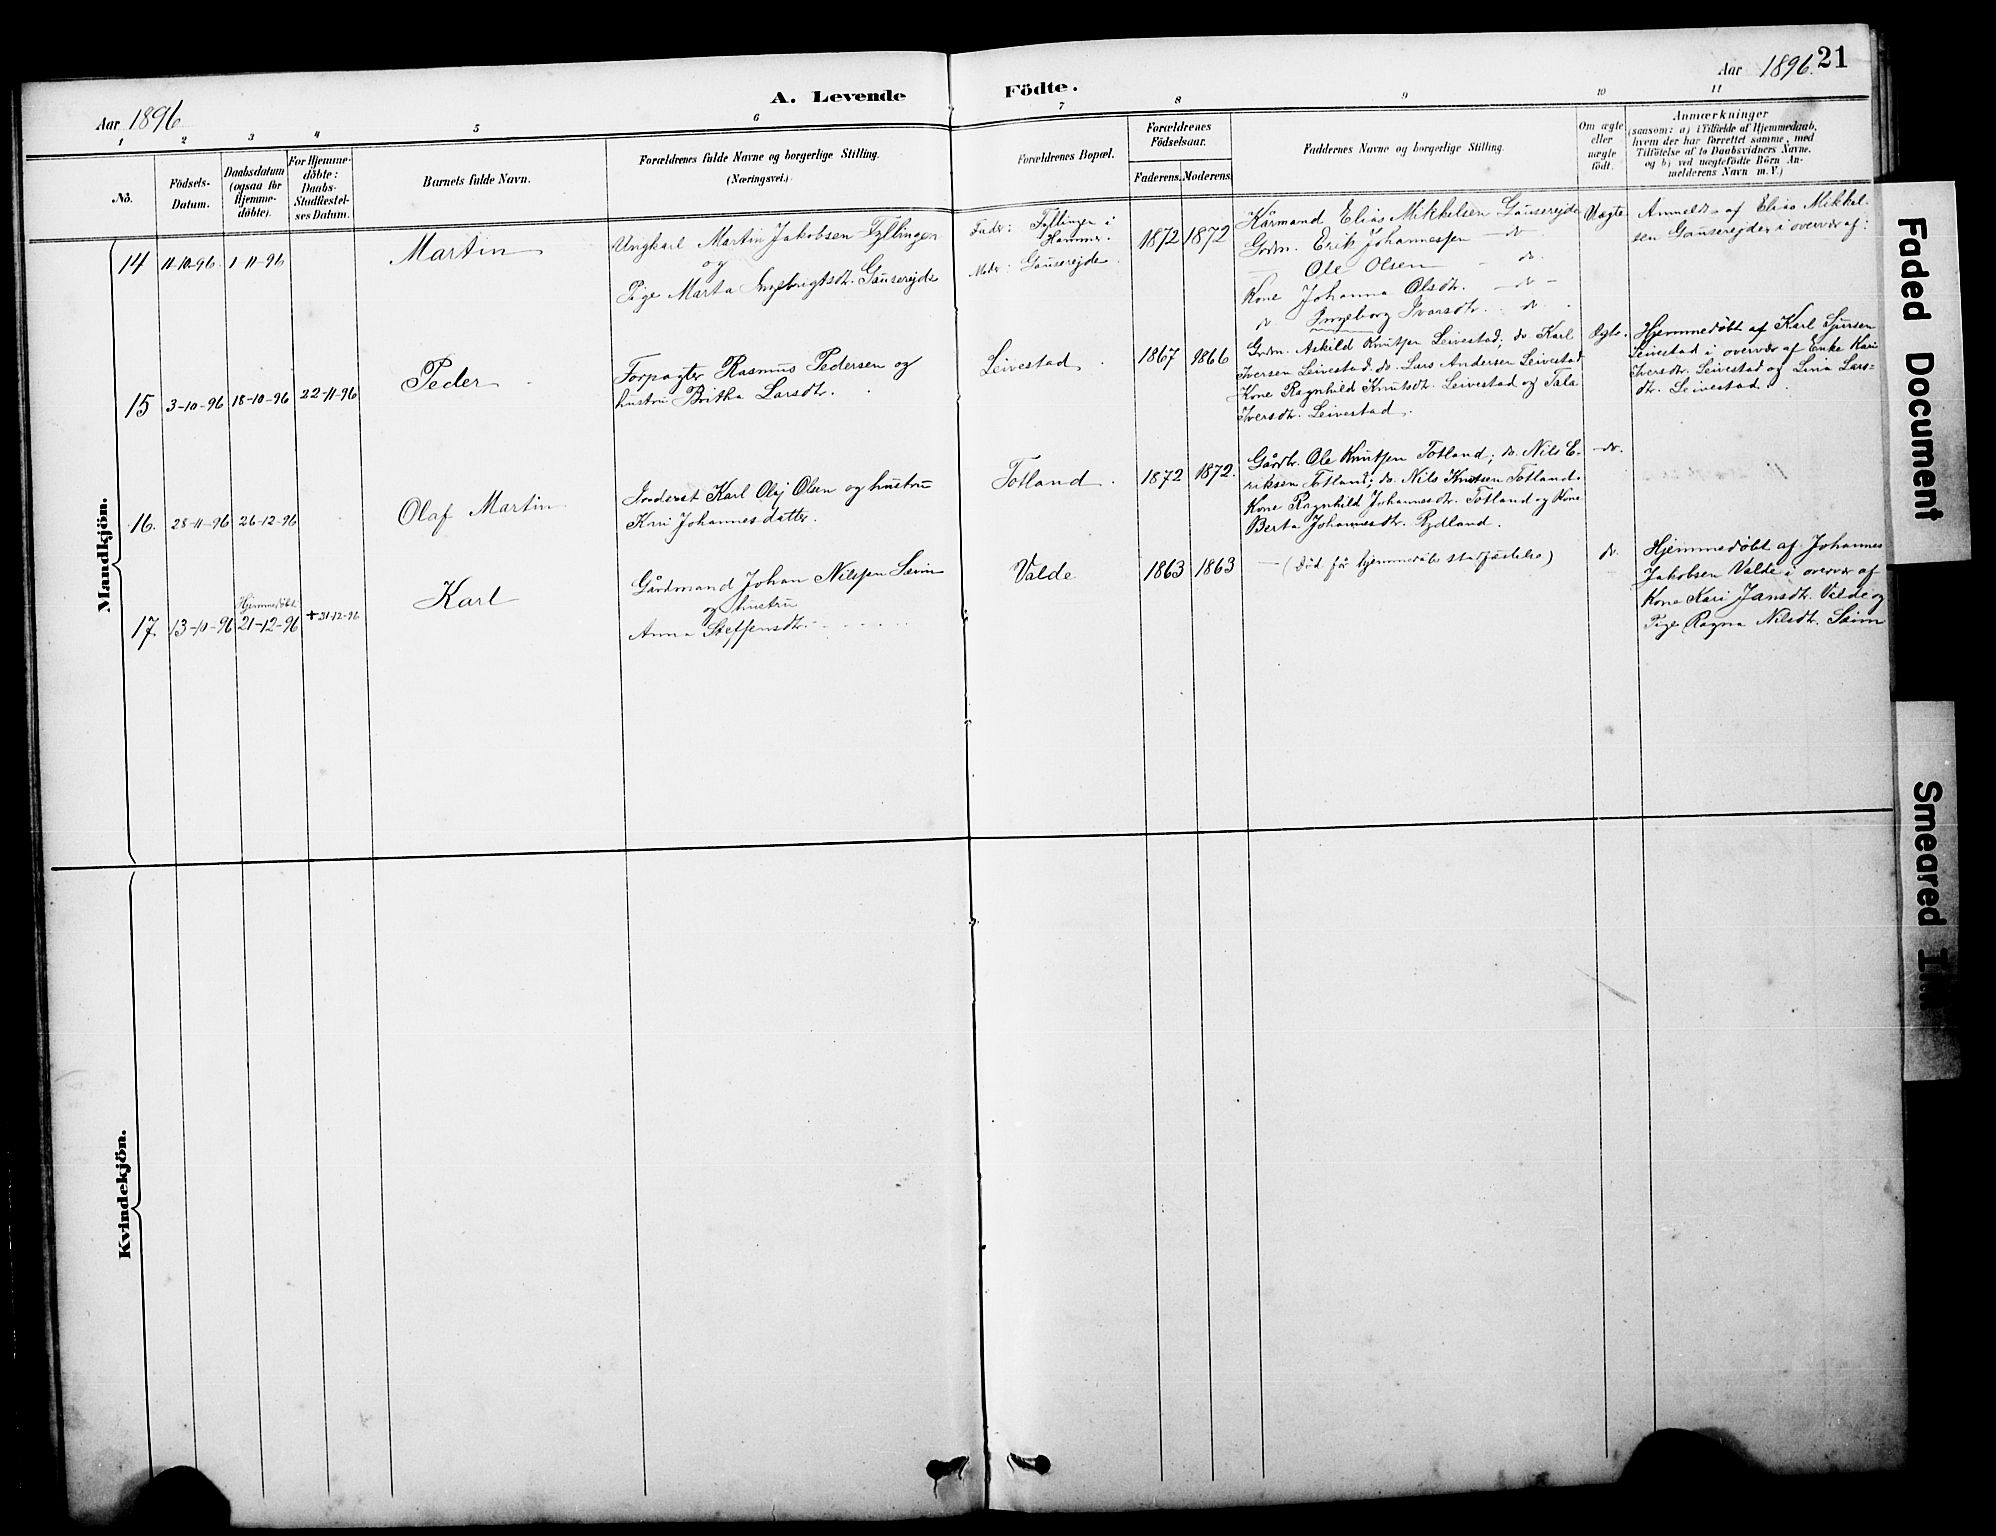 Aar 1896
A. Levende Födte.
Aar 1896. 21
1 2 3 4 5 6 7 8 9 10 11
No.
Födsels-
Datum.
Daabsdatum
(ogsaa for
Hjemme-
döbte).
For Hjemme-
döbte:
Daabs-
Stadfæstel-
ses Datum.
Barnets fulde Navn.
Forældrenes fulde Navne og borgerlige Stilling.
(Næringsvei).
Forældrenes Bopæl.
Forældrenes
Födselsaar.
Faderens. Moderens.
Faddernes Navne og borgerlige Stilling.
Om ægte
eller
uægte
födt.
Anmærkninger
(saasom: a) i Tilfælde af Hjemmedaab,
hvem der har forrettet samme, med
Tilföielse af to Daabsvidners Navne,
og b) ved uægtefödte Börn An-
melderens Navn m. V.)
Mandkjön.
14 11-10-96. 1-11-96
Martin
Ungkarl Martin Jakobsen Fyllingen
og
Pige Marta Engebrigtsdtr. Gauserejde
Fader: Fyllingen i
Hammer.
Moder: Gauserejde.
1872 1872
Kårmand Elias Mikkelsen Gauserejde
Grdm. Erik Johannessen - do
Ole Olsen - do.
Kone Johanna Olsdtr. - do -
do. Ingeborg Ivarsdtr. do.
Uægte.
Anmeldt af Elias Mikkel-
sen Gauserejde i overvær af:
15 3-10-96. 18-10-96 22-11-96
Peder
Forpagter Rasmus Pedersen og
hustru Britha Larsdtr.
Leivestad
1867 1866
Grdm. Askild Knutsen Leivestad; do Karl
Iversen Leivestad, do. Lars Andersen Leivestad
Kone Ragnhild Knutsdtr. Leivestad og
Iversdtr. Leivestad.
Ægte.
Hjemmedøbt af Karl Iversen
Leivestad i overvær af Enke Kari
Iversdtr. Leivestad og Lina Lars-
dtr. Leivestad
16. 28-11-96 26-12-96
Olaf Martin
Karl Olaj Olsen og hustru
Kari Johannesdatter.
Totland.
1872 1872.
Gårdbr. Ole Knutsen Totland; do. Nils E-
riksen Totland; do. Nils Knutsen Totland.
Kone Ragnhild Johannesdtr. Totland og Kone
Berta Johannesdtr. Rydland.
- do.
17. 13-10-96
Hjemmedøbt
21-12-96 + 21-12-96
Karl
Gårdmand Johan Nilssen Seim
og hustru
Anna Steffensdtr.
Valde
1863 1863
- (Død før hjemmedåbs stadfæstelse)
do.
Hjemmedøbt af Johannes
Jakobsen Valde i overvær af
Kone Kari Jansdtr. Valde og
Pige Ragna Nilsdtr. Seim
Kvindekjön.
Faded Document
Smeared